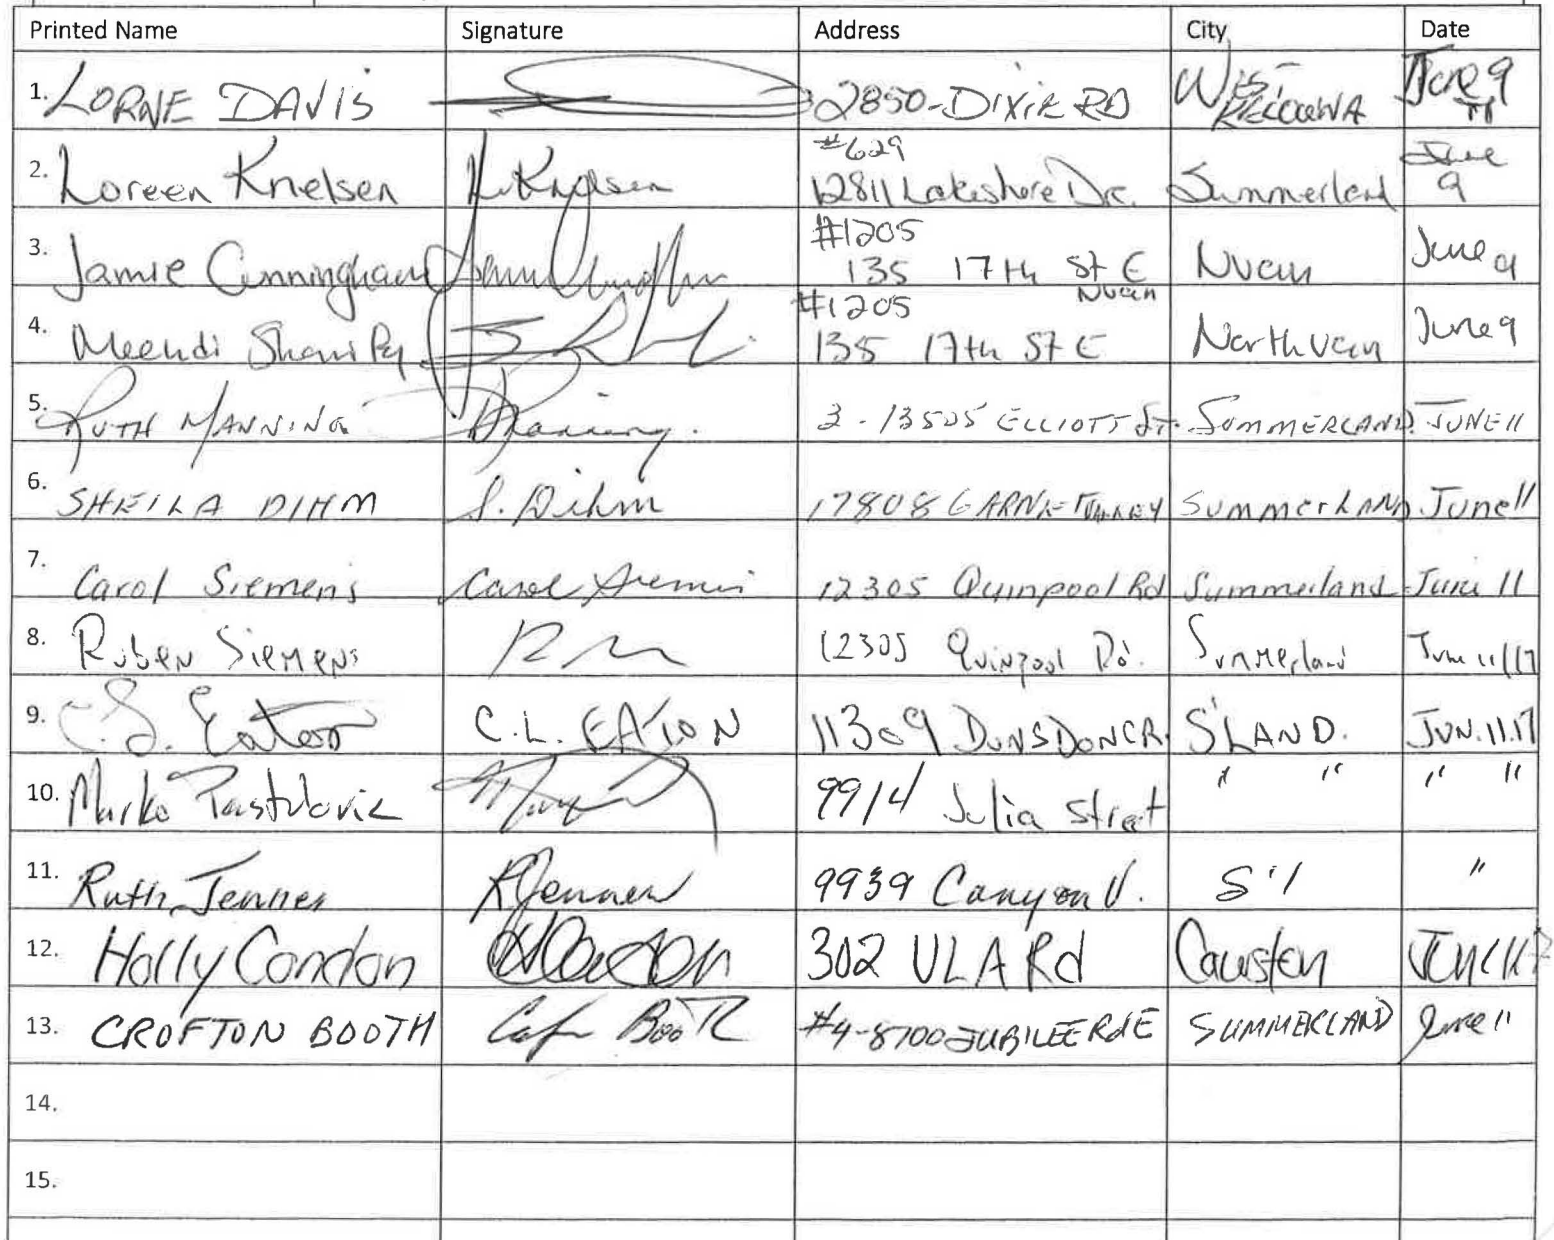 Printed Name Signature Address City Date
1. LORNE DAVIS 2850-DIXIE RD WEST KELOWNA June 9
2. Loreen Knelsen L. Knelsen #629 12811 Lakeshore Dr. Summerland June 9
3. Jamie Cunningham #1205 135 17th St E Nvan Nvan June 9
4. #1205 135 17th St E North Van June 9
5. RUTH MANNING RManning. 3-13505 ELLIOTT ST. SUMMERLAND. JUNE 11
6. SHEILA DIHM S. Dihm 17808 SUMMERLAND June 11
7. Carol Siemens Carol Siemens 12305 Quinpool Rd Summerland June 11
8. Ruben Siemens 12305 Quinpool Rd. Summerland June 11/17
9. C.L. Eaton C.L. EATON 11309 DUNSDON CR. S'LAND. JUN. 11.17
10. Marko 9914 Julia Street " " " "
11. Ruth Jenner RJenner 9939 Canyon V. S'l "
12. Holly Condon HCondon 302 VLA Rd Cawston
13. CROFTON BOOTH Booth #4-8700 JUBILEE Rd E SUMMERLAND June 11
14.
15.